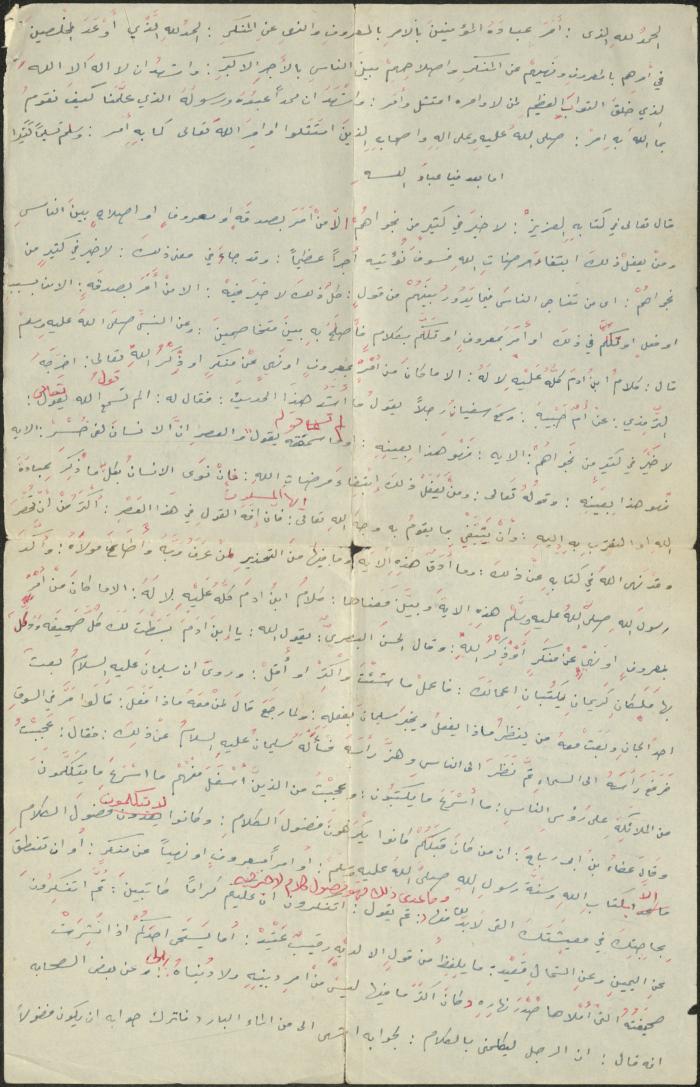 الحمد لله الذى : أمَرَ عبادَهُ المؤمنينَ بالامرِ بالمعروفِ والنهى عن المنكرِ : الحمد لله الَّذي أوعَدَ المخلصينَ
في أمرهم بالمعروف ونهيهم عن المنكرِ واصلاحهمْ بينَ الناسِ بالأجرِ الاكبرِ : واشهدُ ان لا اله الا الله
الذي خلقَ الثوابَ العظيمَ لمن لاوامره امتثل وأمر : واشهَدُ ان محمداً عبدُهُ ورسولهُ الذي علَّمنا كيفَ نقومُ
بما اللهُ بهِ امرَ : صلى اللهُ عليهِ وعلى الهِ واصحابهِ الذينَ امتثلوا اوامرَ اللهِ تعالى كما بهِ أمر : وسلم تسليماً كثيرا
اما بعد فيا عبادَ الله
قال تعالى في كتابهِ العزيز : لا خيرَ في كثيرٍ من نجواهُمْ الاَّ منْ أمَرَ بصدقةٍ او معروفٍ او اصلاحٍ بينَ الناسِ
ومنْ يفعلْ ذلكَ ابتغاءَ مرضاتِ اللهِ فسوفَ نُؤتيهِ أجراً عظيماً : وقد جاءَ في معنى ذلكَ : لا خيرَ في كثيرٍ من
نجواهُمْ : اى من تناجى الناسَ فيما يدورُ بينَهُمْ من قولٍ : كلُّ ذلكَ لا خيرَ فيهْ : الا منْ أمَرَ بصدقةٍ : الا من بسبب
او فعل او تكلَّمَ في ذلكَ او أمَرَ بمعروفٍ او تكلَّمَ بكلامٍ فأصلحَ به بينَ متخاصمينَ : وعن النبيِّ صلى اللهُ عليه وسلمْ
قال : كلامُ ابنُ ادمَ كلُّهُ عليْهِ لا لهُ : الا ما كانَ من أمْرٍ بمعروفٍ او نهى عنْ منكرٍ او ذِكْرُ اللهِ تعالى : اخرجهُ
التِّرمذي : عنْ أمِّ حبيبةَ : وسمع سفيانُ رجلاً يقولُ ما أشدَّ هذا الحديثَ : فقال له : الم تسمع الله يقول قول تعالى :
لا خيْرَ في كثيرٍ من نجواهُمْ : الايه : فهو هذا بعينهِ : اوما سمعته لم تسمعا قوله يقول والعصرِ انَّ الانسانَ لفى خُسْرٍ : الايه
فهو هذا بعينهِ : وقولهُ تعالى : ومنْ يفعلْ ذلكَ ابتغاءَ مرضاتِ اللهِ : فانْ نوَى الانسانُ بكلِّ ما ذُكِرَ عبادةَ
اللهِ او التقرُّبَ بهِ اليهِ : وأنْ يبتغيَ بما يقومُ به وجهَ اللهِ تعالى : ايها المسلمون فانَّ القولَ في هذا العصرِ : أكثرُ منْ أنْ يحصَرَ
وقدْ نهى اللهُ في كتابهِ عنْ ذلكَ : وما أدقَّ هذهِ الايةَ وما فيها منَ التحذيرِ لمنْ عرَفَ ربَّهُ وأطاعَ مولاهُ : وأكَّدَ
رسولُ اللهِ صلى اللهُ عليهِ وسلَّمَ هذهِ الايةَ وبينَ معناها : كلامُ ابنُ ادمَ كلُّهُ عليْهِ لا لهُ : الا ما كانَ منْ أمْرٍ
بمعروفٍ او نهىٌ عنْ منكرٍ أوْ ذِكْرُ اللهِ : وقال الحسنُ البصريُّ : يقولُ اللهُ : يا ابنَ ادمَ بسَطْتُ لكَ كلَّ صحيفةٍ ووكلَ
بها ملَكانِ كريمانِ يكتبانِ اعمالكَ : فاعمل ما شئْتَ واكثِرْ او أقلَّ : وروىَ ان سليمانَ عليهِ السلامُ بعثَ
احدُ الجانِ وبعثَ معهُ من ينظرُ ماذا يفعلُ ويخبرُ سليمانَ بفعلهِ : ولما رجعَ قالَ لمنْ معهُ ماذا فعَلَ : قالوا مرَّ في السوقِ
فرفعَ رأسَهُ الى السماءِ ثمَّ نظَرَ الى الناسِ وهزَّ رأسَهُ فسألَهُ سليمانُ عليهِ السلامُ عنْ ذلكَ : فقال : عجبْتُ
من الملائكةِ على رؤسِ الناسِ : ما أسرعَ ما يكتبونَ : وعجبْتُ من الذينَ أسفلَ منهُمْ ما اسرعَ ما يتكلَّمونَ
وقال عطاءُ بن ابى رباحٍ : ان من كانَ قبلَكُمْ كانوا يكرهونَ فضولَ الكلامِ : وكانوا لا يتكلمون فضولَ الكلامِ
الا بكتابِ اللهِ وسنةَ رسولِ اللهِ صلى اللهُ عليهِ وسلمْ : أو امراً معروفٍ او نهياً عن منكرٍ : أو ان تنطِقَ
بحاجتِكَ في معيشتِكَ التى لابدَّ لكَ منها : وما عدى ذلك فهو فضول كلام لا خير فيه ثم يقولُ : اتنكرونَ ان عليكم كراماً كاتبينَ : ثمَّ اتنكرونَ
عنِ اليمينِ وعنِ الشمالِ قعيد : ما يلفِظُ من قولٍ الا لديهِ رقيبٌ عتيدٌ : أما يستحى احدكُمْ اذا نُشِرَتْ
صحيفتُهُ التى أملاها صَدْرَ نهارِهِ وكانَ اكثَرَ ما فيها ليسَ منْ امرِ دينِهِ ولا دنياهُ : وعن بعض الصحابه
انه قال : ان الرجل ليكلمنى بالكلام : لجوابه اشهى الى من الماء البارد فاترك جوابه ان يكون فضولاً